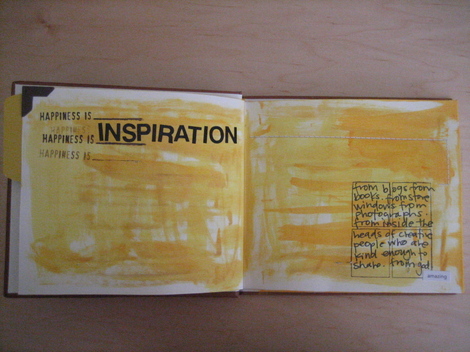 HAPPINESS IS
HAPPINESS
HAPPINESS IS INSPIRATION
HAPPINESS IS
from blogs. from
books. from store
windows. from
photographs.
from inside the
heads of creative
people who are
kind enough to
share. from god.
amazing